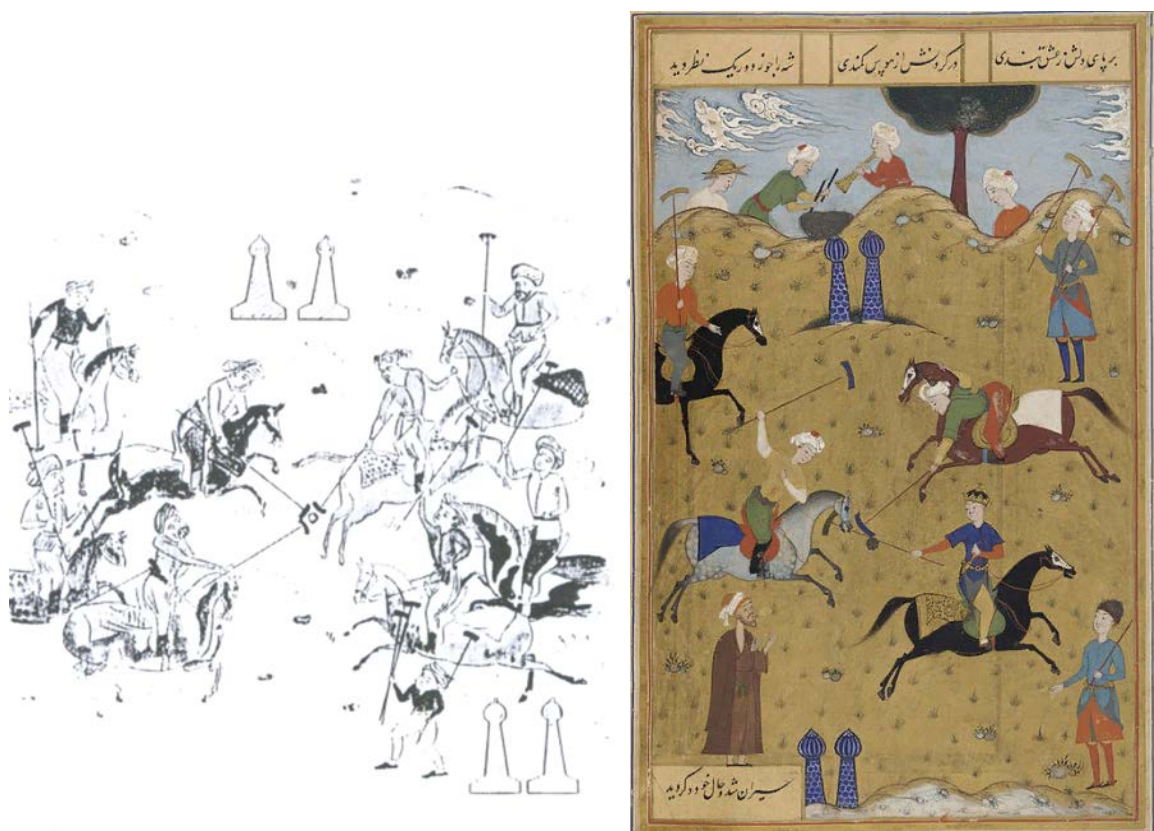 بر پای دلش ز عشق بندی
در گردنش از هوس کمندی
شه را چو ز دور یک نظر دید
حیران شد و حال خود دگر دید